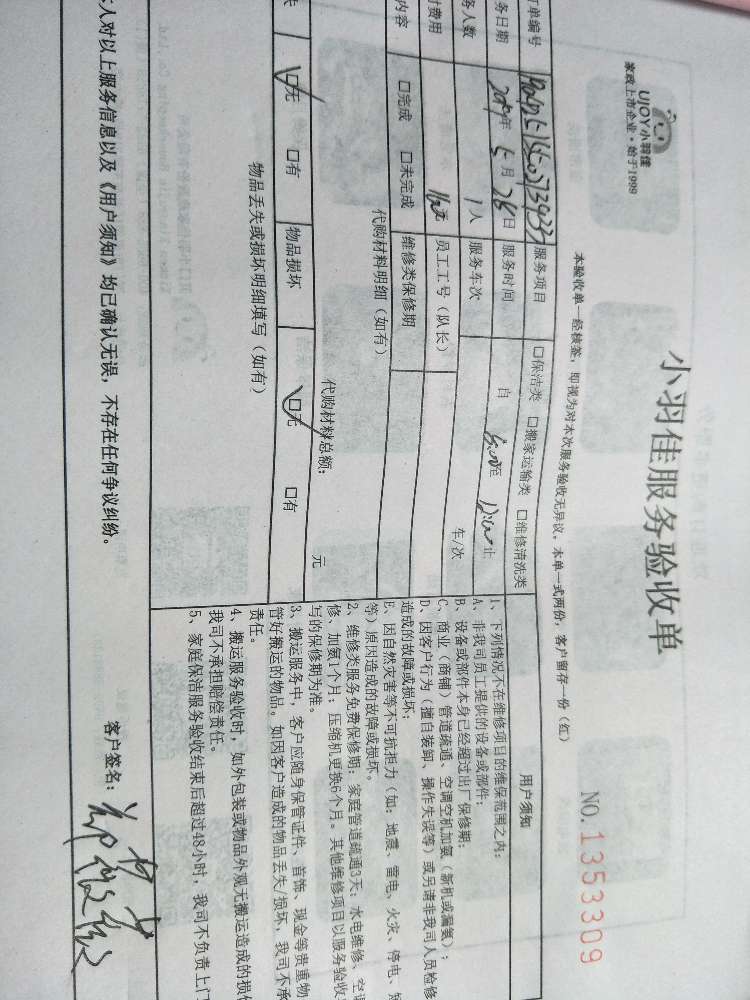 UJOY小羽佳
家政上市企业·始于1999
小羽佳服务验收单
NO.1353309
本验收单一经核签，即视为对本次服务验收无异议，本单一式两份，客户留存一份（红）
单编号
服务项目
□保洁类 □搬家运输类 □维修清洗类
务日期
2019年 5月 28日
服务时间
自 至 止
务人数
1人
服务车次
车/次
费用
元
员工工号（队长）
内容
□完成 □未完成
维修类保修期
代购材料明细（如有）
代购材料总额： 元
□无 □有
物品损坏
□无 □有
物品丢失或损坏明细填写（如有）
用户须知
1、下列情况不在维修项目的维保范围之内：
A、非我司员工提供的设备或部件；
B、设备或部件本身已经超过出厂保修期；
C、商业（商铺）管道疏通、空调空机加氨（新机或漏氨）；
D、因客户行为（擅自装卸、操作失误等）或另请非我司人员检修
造成的故障或损坏；
E、因自然灾害等不可抗拒力（如：地震、雷电、火灾、停电、
等）原因造成的故障或损坏。
2、维修类服务免费保修期：家庭管道疏通3天；水电维修、空
修、加氨1个月；压缩机更换6个月。其他维修项目以服务验收
写的保修期为准。
3、搬运服务中，客户应随身保管证件、首饰、现金等贵重物
管好搬运的物品。如因客户造成的物品丢失/损坏，我司不承
责任。
4、搬运服务验收时，如外包装或物品外观无搬运造成的损
我司不承担赔偿责任。
5、家庭保洁服务验收结束后超过48小时，我司不负责上门
人对以上服务信息以及《用户须知》均已确认无误，不存在任何争议纠纷。
客户签名：